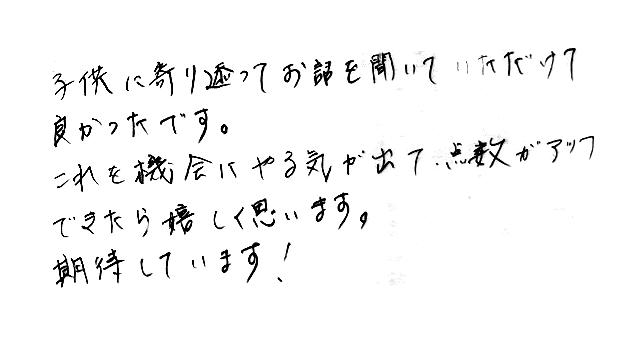 子供に寄り添ってお話を聞いていただけて
良かったです。
これを機会にやる気が出て、点数がアップ
できたら嬉しく思います。
期待しています!